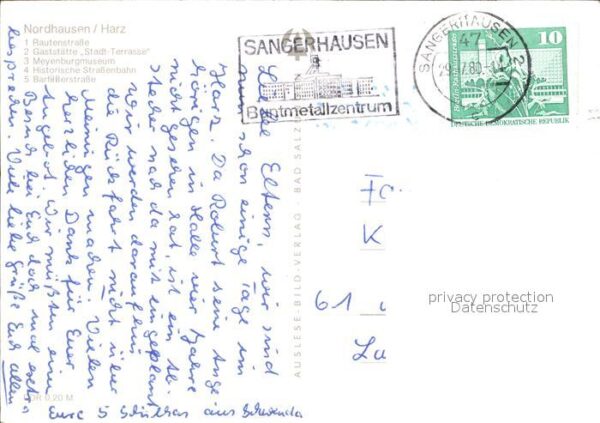 Nordhausen / Harz
1 Rautenstraße
2 Gaststätte „Stadt-Terrasse“
3 Meyenburgmuseum
4 Historische Straßenbahn
5 Barfüßerstraße
SANGERHAUSEN
Buntmetallzentrum
SANGERHAUSEN 2
47
10
DEUTSCHE DEMOKRATISCHE REPUBLIK
Liebe Eltern, wir sind
nun schon einige Tage im
Harz. Da Robert seine Ange-
hörigen in Halle vier Jahre
nicht gesehen hat, ist ein Ab-
stecher nach da mit eingeplant
wir werden daraufhin
die Rückfahrt nicht über
Meiningen machen. Vielen
herzlichen Dank für Euer
Angebot. Wir müßten ein
Besuch bei Euch doch mal extra
besprechen. Viele liebe Grüße Euch allen
Eure 5 aus Schwenda
AUSLESE-BILD-VERLAG · BAD SALZ
K
61
La
privacy protection
Datenschutz
0,20 M